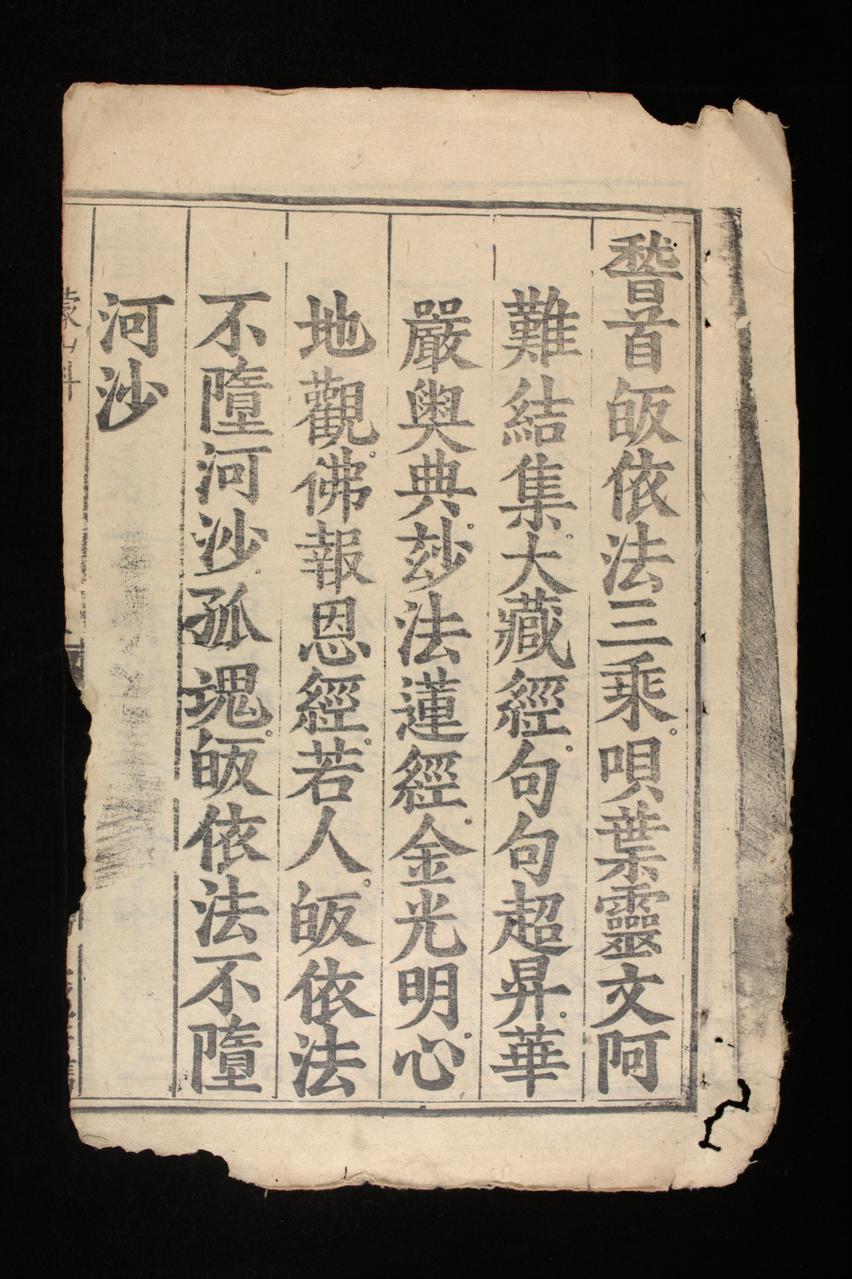 稽首皈依法三乘。唄葉靈文阿
難結集。大藏經。句句超昇。華
嚴奧典。玅法蓮經。金光明。心
地觀。佛報恩經。若人。皈依法
不墮河沙。孤魂。皈依法不墮
河沙